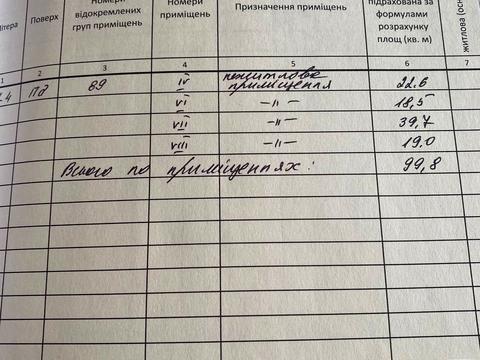 Літера
Поверх
Номери
відокремлених
груп приміщень
Номери
приміщень
Призначення приміщень
підрахована за
формулами
розрахунку
площ (кв. м)
житлова (осн
1 2 3 4 5 6 7
4 Пд 69 IV нежитлове приміщення 22.6
VI –"– 18,5
VII –"– 39,7
VIII –"– 19.0
Всього по приміщеннях: 99,8